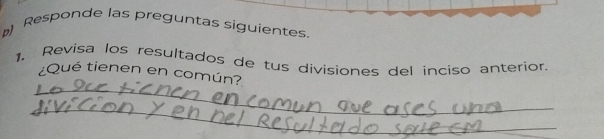 b) Responde las preguntas siguientes.
1. Revisa los resultados de tus divisiones del inciso anterior.
¿Qué tienen en común?
Lo que tienen en comun que ases una
divicion y en nel Resultado sale